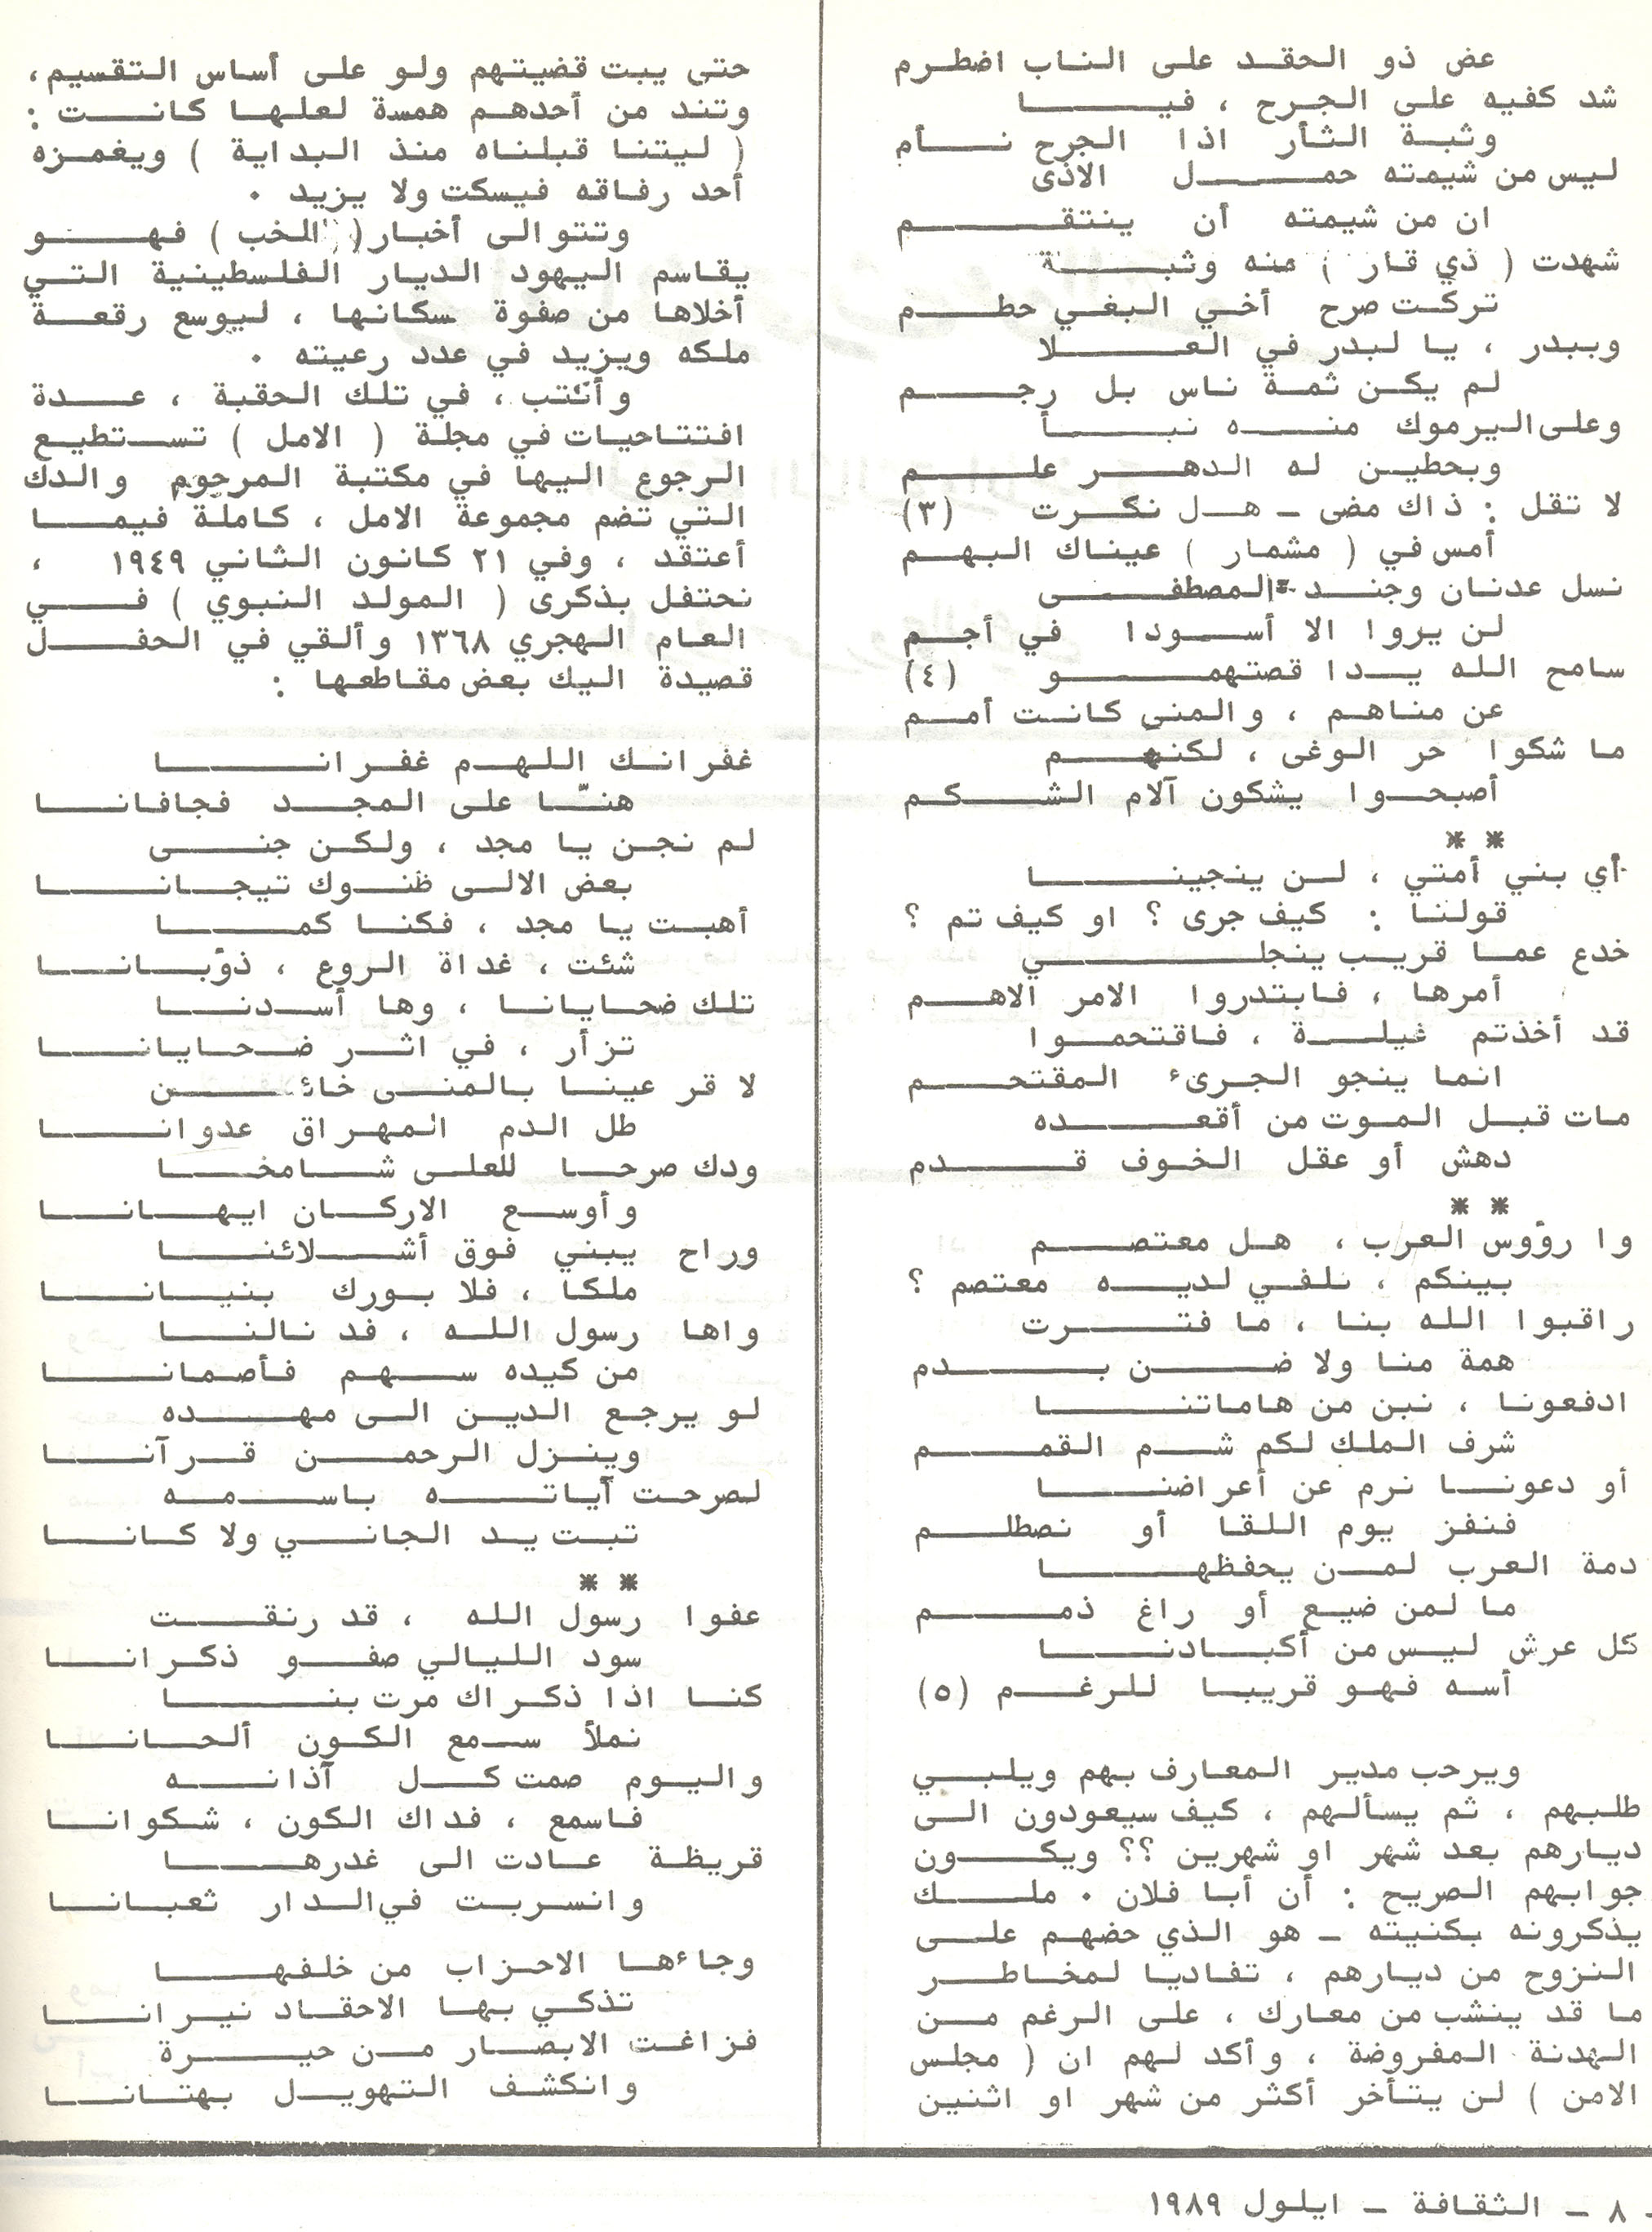 عض ذو الحقد على الناب اضطرم
شد كفيه على الجرح ، فيا
وثبة الثأر اذا الجرح نأم
ليس من شيمته حمل الاذى
ان من شيمته أن ينتقم
شهدت ( ذي قار ) منه وثبة
تركت صرح أخي البغي حطم
وببدر ، يا لبدر في العلا
لم يكن ثمة ناس بل رجم
وعلى اليرموك منه نبأ
وبحطين له الدهر علم
لا تقل : ذاك مضى - هل نكرت (٣)
أمس في ( مشمار ) عيناك البهم
نسل عدنان وجند المصطفى
لن يروا الا أسودا في أجم
سامح الله يدا قصتهمو (٤)
عن مناهم ، والمنى كانت أمم
ما شكوا حر الوغى ، لكنهم
أصبحوا يشكون آلام الشكم
* *
أي بني أمتي ، لن ينجينا
قولنا : كيف جرى ؟ او كيف تم ؟
خدع عما قريب ينجلي
أمرها ، فابتدروا الامر الاهم
قد أخذتم غيلة ، فاقتحموا
انما ينجو الجرىء المقتحم
مات قبل الموت من أقعده
دهش أو عقل الخوف قدم
* *
وا رؤوس العرب ، هل معتصم
بينكم ، نلفي لديه معتصم ؟
راقبوا الله بنا ، ما فترت
همة منا ولا ضن بدم
ادفعونا ، نبن من هاماتنا
شرف الملك لكم شم القمم
أو دعونا نرم عن أعراضنا
فنفز يوم اللقا أو نصطلم
دمة العرب لمن يحفظها
ما لمن ضيع أو راغ ذمم
كل عرش ليس من أكبادنا
أسه فهو قريبا للرغم (٥)
ويرحب مدير المعارف بهم ويلبي
طلبهم ، ثم يسألهم ، كيف سيعودون الى
ديارهم بعد شهر او شهرين ؟؟ ويكون
جوابهم الصريح : أن أبا فلان . ملك
يذكرونه بكنيته - هو الذي حضهم على
النزوح من ديارهم ، تفاديا لمخاطر
ما قد ينشب من معارك ، على الرغم من
الهدنة المفروضة ، وأكد لهم ان ( مجلس
الامن ) لن يتأخر أكثر من شهر او اثنين
حتى يبت قضيتهم ولو على أساس التقسيم،
وتند من أحدهم همسة لعلها كانت :
( ليتنا قبلناه منذ البداية ) ويغمزه
أحد رفاقه فيسكت ولا يزيد .
وتتوالى أخبار ( الخب ) فهو
يقاسم اليهود الديار الفلسطينية التي
أخلاها من صفوة سكانها ، ليوسع رقعة
ملكه ويزيد في عدد رعيته .
وأكتب ، في تلك الحقبة ، عدة
افتتاحيات في مجلة ( الامل ) تستطيع
الرجوع اليها في مكتبة المرحوم والدك
التي تضم مجموعة الامل ، كاملة فيما
أعتقد ، وفي ٢١ كانون الثاني ١٩٤٩ ،
نحتفل بذكرى ( المولد النبوي ) في
العام الهجري ١٣٦٨ وألقي في الحفل
قصيدة اليك بعض مقاطعها :
غفرانك اللهم غفرانا
هنّا على المجد فجافانا
لم نجن يا مجد ، ولكن جنى
بعض الالى ظنوك تيجانا
أهبت يا مجد ، فكنا كما
شئت ، غداة الروع ، ذؤبانا
تلك ضحايانا ، وها أسدنا
تزأر ، في اثر ضحايانا
لا قر عينا بالمنى خائن
طل الدم المهراق عدوانا
ودك صرحا للعلى شامخا
وأوسع الاركان ايهانا
وراح يبني فوق أشلائنا
ملكا ، فلا بورك بنيانا
واها رسول الله ، قد نالنا
من كيده سهم فأصمانا
لو يرجع الدين الى مهده
وينزل الرحمن قرآنا
لصرحت آياته باسمه
تبت يد الجاني ولا كانا
* *
عفوا رسول الله ، قد رنقت
سود الليالي صفو ذكرانا
كنا اذا ذكراك مرت بنا
نملأ سمع الكون ألحانا
واليوم صمت كل آذانه
فاسمع ، فداك الكون ، شكوانا
قريظة عادت الى غدرها
وانسربت في الدار ثعبانا
وجاءها الاحزاب من خلفها
تذكي بها الاحقاد نيرانا
فزاغت الابصار من حيرة
وانكشف التهويل بهتانا
٨ - الثقافة - ايلول ١٩٨٩